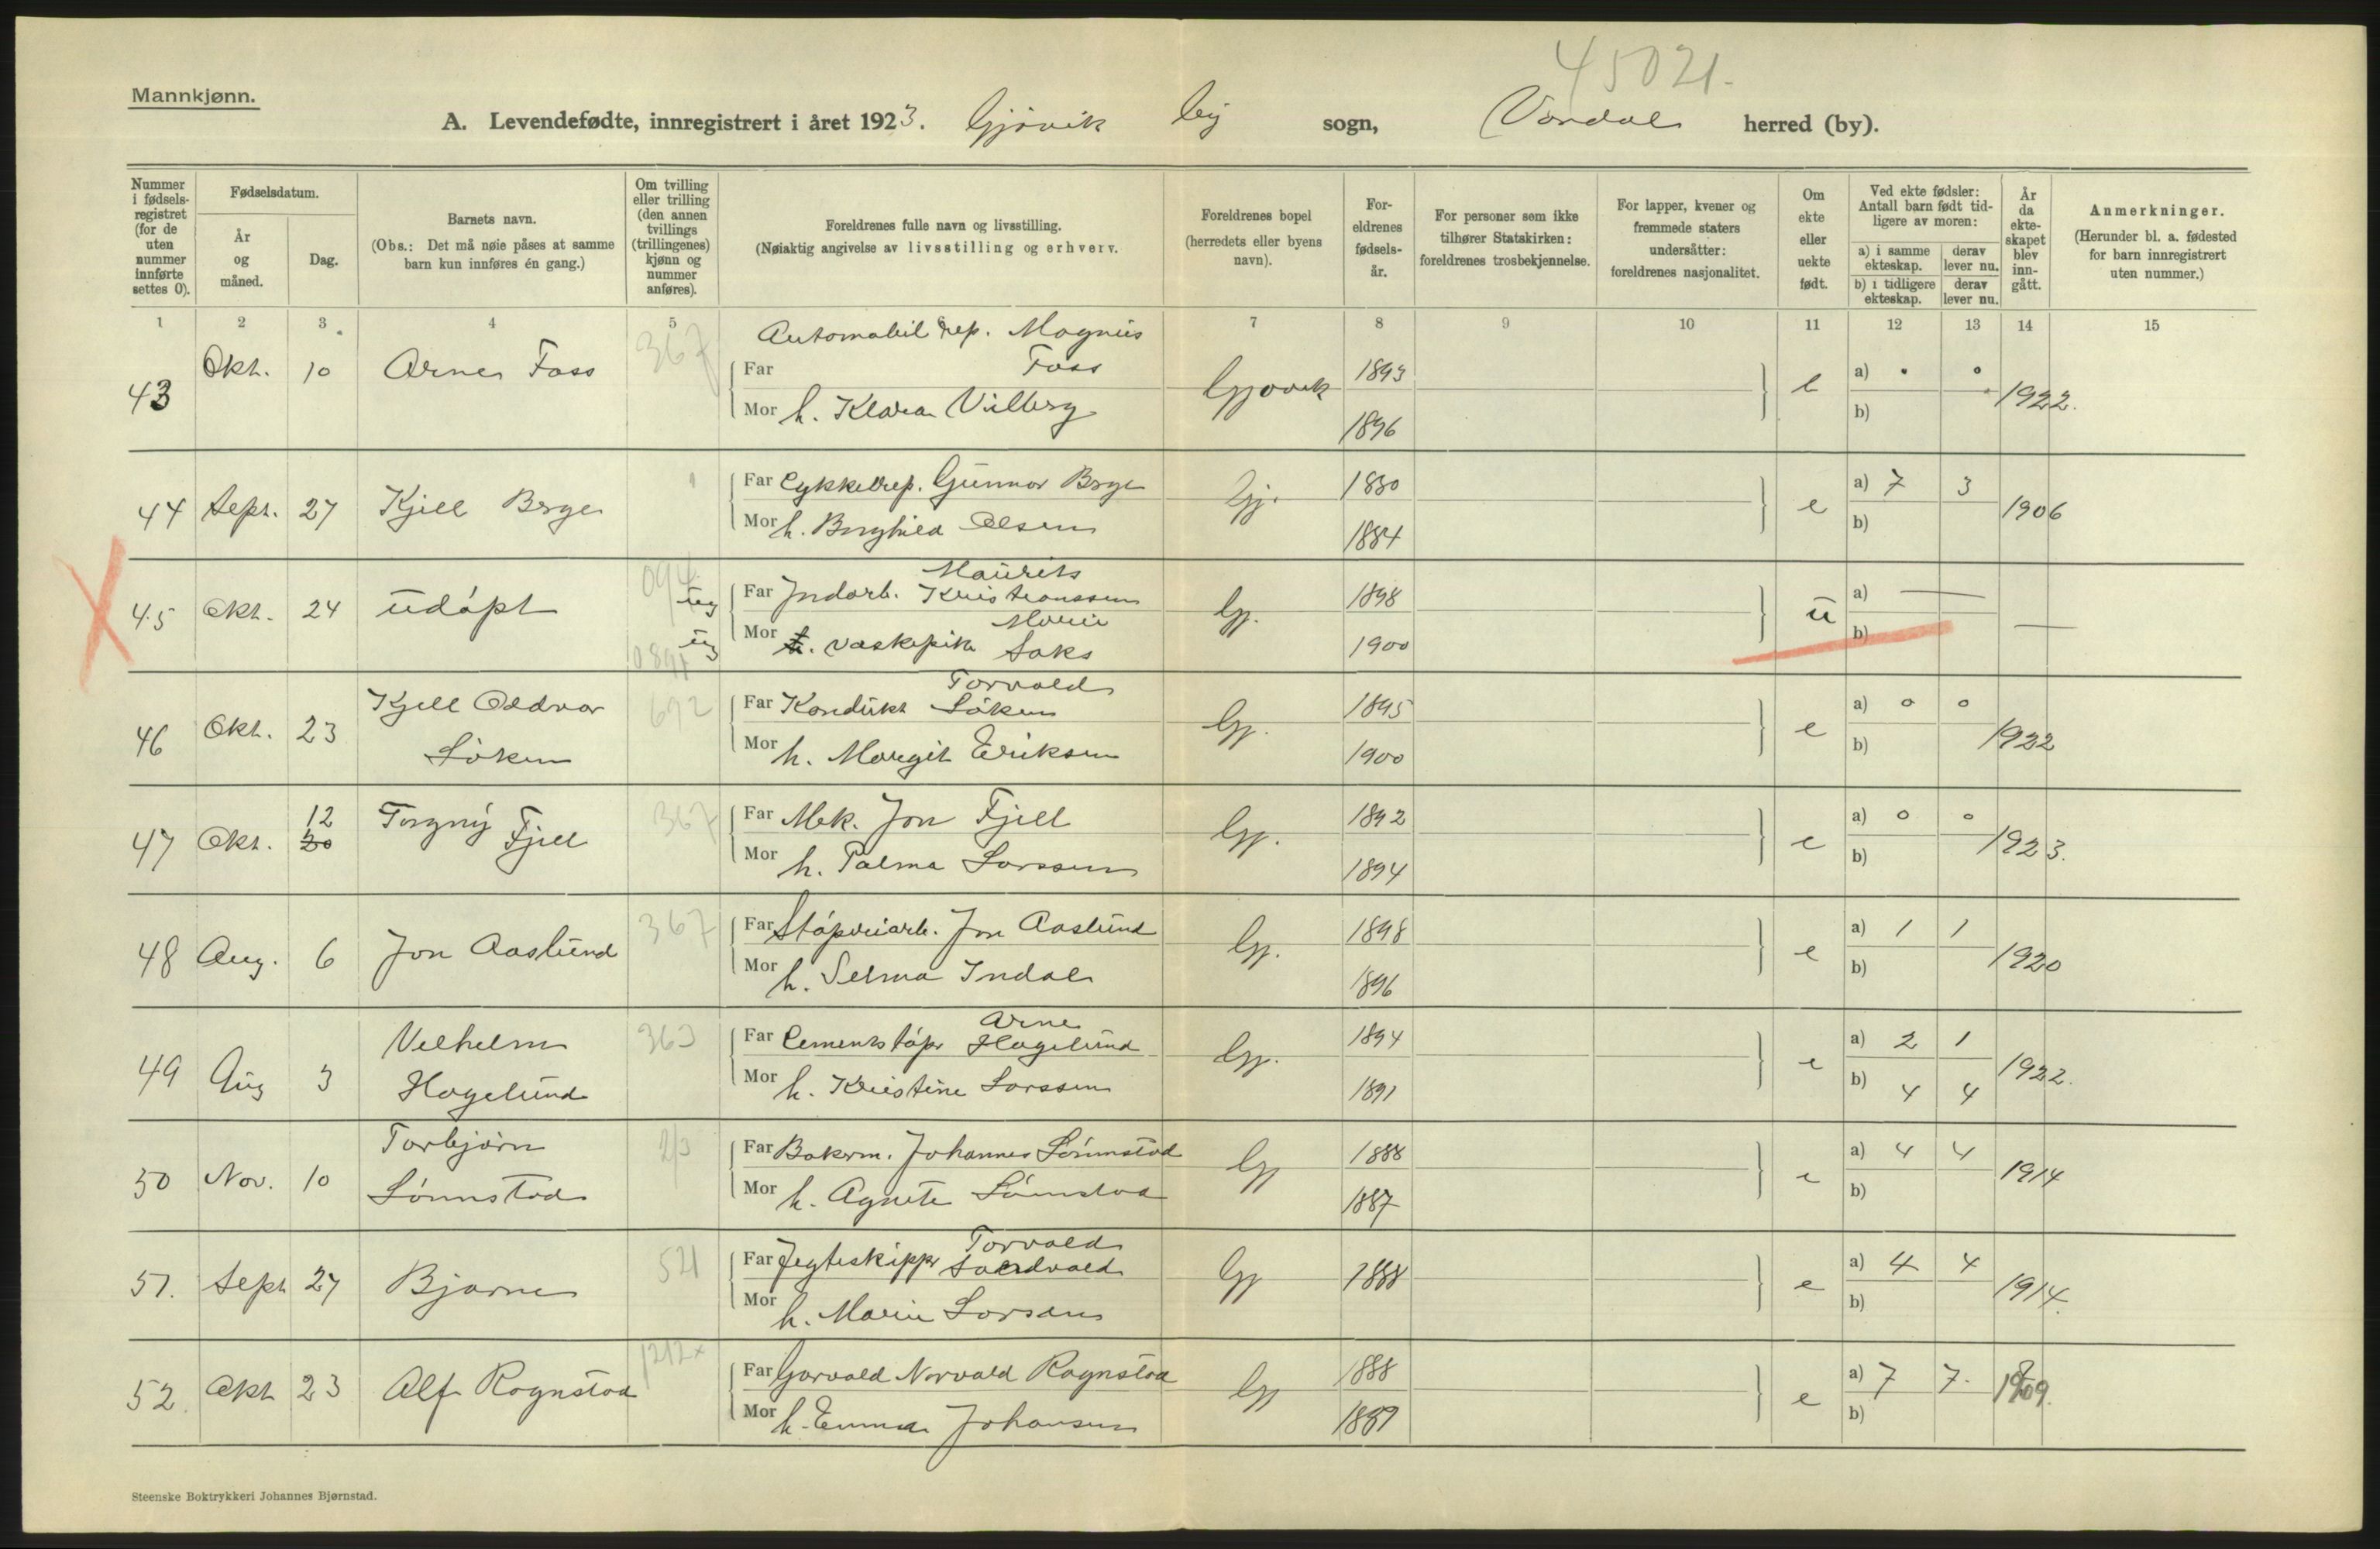 45021.
Mannkjønn.
A. Levendefødte, innregistrert i året 1923. Gjøvik by sogn, Vardal herred (by).
Nummer i fødselsregistret (for de uten nummer innførte settes 0).
Fødselsdatum.
År og måned.
Dag.
Barnets navn.
(Obs.: Det må nøie påses at samme barn kun innføres én gang.)
Om tvilling eller trilling (den annen tvillings (trillingenes) kjønn og nummer anføres).
Foreldrenes fulle navn og livsstilling.
(Nøiaktig angivelse av livsstilling og erhverv.
Foreldrenes bopel (herredets eller byens navn).
Foreldrenes fødselsår.
For personer som ikke tilhører Statskirken: foreldrenes trosbekjennelse.
For lapper, kvener og fremmede staters undersåtter: foreldrenes nasjonalitet.
Om ekte eller uekte født.
Ved ekte fødsler: Antall barn født tidligere av moren:
a) i samme ekteskap.
derav lever nu.
b) i tidligere ekteskap.
derav lever nu.
År da ekteskapet blev inngått.
Anmerkninger.
(Herunder bl. a. fødested for barn innregistrert uten nummer.)
1 2 3 4 5 7 8 9 10 11 12 13 14 15
43 Okt. 10 Arne Foss 367
Automobil rep. Magnus
Far Foss Gjøvik 1893 e a) 0 0 1922.
Mor h. Klara Vilberg 1896 b)
44 Sept. 27 Kjell Berge
Far Cykkelrep. Gunnar Berge Gj. 1880 e a) 7 3 1906
Mor h. Borghild Olsen 1884 b)
45 Okt. 24 udøpt 094 ug ug
Far Indarb. Maurits Kristianssen Gj. 1898 u a) —
Mor h. vaskepike Marie Saks 1900 b) —
46 Okt. 23 Kjell Oddvar Løken 692
Far Kondukt Torvald Løken Gj. 1895 e a) 0 0 1922
Mor h. Margit Eriksen 1900 b)
47 Okt. 12 20 Torgny Fjell 367
Far Mek. Jon Fjell Gj. 1892 e a) 0 0 1923.
Mor h. Palma Larssen 1894 b)
48 Aug. 6 Jon Aaslund 367
Far Støperiarb. Jon Aaslund Gj. 1898 e a) 1 1 1920
Mor h. Selma Indal 1896 b)
49 Aug 3 Vilhelm Hagelund 363
Far Cementstøper Arne Hagelund Gj. 1894 e a) 2 1 1922.
Mor h. Kristine Larssen 1891 b) 4 4
50 Nov. 10 Torbjørn Lønnstad
Far Bakerm. Johannes Lønnstad Gj 1888 e a) 4 4 1914
Mor h. Agnete Lønnstad 1887 b)
51. Sept 27 Bjarne 521
Far Jegteskipper Torvald Sandvold Gj 1888 e a) 4 4 1914.
Mor h. Marie Larsen b)
52. Okt 23 Alf Rognstad 1212x
Far Garvald Norvald Rognstad Gj 1888 e a) 7 7. 1909.
Mor h. Emma Johansen 1889 b)
Steenske Boktrykkeri Johannes Bjørnstad.